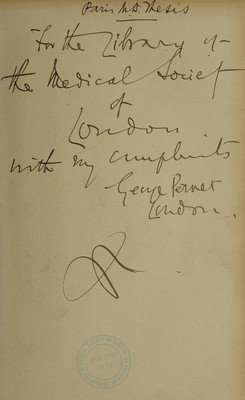 Paris M.D. Thesis
For the Library of
the Medical Society
of
London
with my compliments
George Pernet
London.